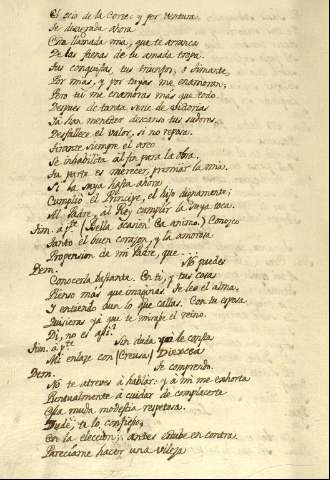 El ocio de la Corte: y por ventura
Te desagrada ahora
Esta llamada mia, que te arranca
De las faenas de tu amada tropa.
Tus conquistas, tus triunfos, o Timante,
Por mias, y por tuyas me enamoran;
Pero tú me enamoras más que todo.
Despues de tanta serie de victorias
Ya han menester descanso tus sudores.
Desfallece el valor, si no reposa.
Tirante siempre el arco
Se inhabilita al fin para la obra.
Su parte es merecer, premiar la mia.
Si la suya hasta ahora
Cumplió el Principe, el hijo dignamente;
Al Padre, al Rey cumplir la suya toca.
Tim. a pte (Bella ocasion! Ea animo.) Conozco
Tanto el buen corazon, y la amorosa
Propension de mi Padre, que...
Dem. No puedes
Conocerla bastante. En ti, y tus cosas
Pienso más que imaginas: te leo el alma,
Y entiendo aun lo que callas. Con tu esposa
Quisieras ya que te mirase el reino.
Di, no es asi?
Tim. a pte Sin duda le consta
Mi enlace con Dircea
Dem. Se comprende.
No te atreves á hablar: y a mi me exhorta
Puntualmente á cuidar de complacerte
Esa muda modestia respetosa.
Dudé, te lo confieso,
En la eleccion; antes estube en contra.
Pareciame hacer una vileza